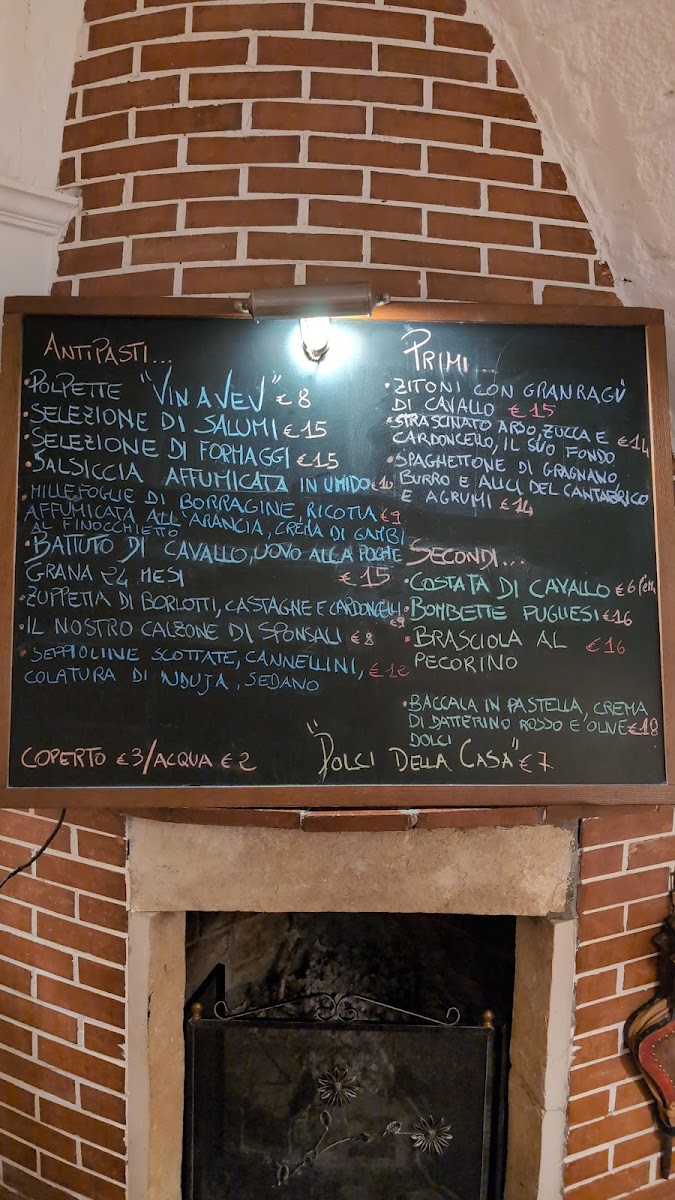 ANTIPASTI...
•POLPETTE "VINAVEV" €8
•SELEZIONE DI SALUMI €15
•SELEZIONE DI FORMAGGI €15
•SALSICCIA AFFUMICATA IN UMIDO €10
•MILLEFOGLIE DI BORRAGINE, RICOTTA €9
AFFUMICATA ALL'ARANCIA, CREMA DI GAMBI
AL FINOCCHIETTO
•BATTUTO DI CAVALLO, UOVO ALLA POCHE
GRANA 24 MESI €15
•ZUPPETTA DI BORLOTTI, CASTAGNE E CARDONCELLI €9
•IL NOSTRO CALZONE DI SPONSALI €8
•SEPPIOLINE SCOTTATE, CANNELLINI, €12
COLATURA DI NDUJA, SEDANO
COPERTO €3/ACQUA €2
PRIMI...
•ZITONI CON GRANRAGÙ
DI CAVALLO €15
•STRASCINATO ARSO, ZUCCA E €14
CARDONCELLO, IL SUO FONDO
•SPAGHETTONE DI GRAGNANO,
BURRO E ALICI DEL CANTABRICO
E AGRUMI €14
SECONDI...
•COSTATA DI CAVALLO €6
•BOMBETTE PUGLIESI €16
•BRASCIOLA AL €16
PECORINO
•BACCALA IN PASTELLA, CREMA
DI DATTERINO ROSSO E OLIVE €18
DOLCI
"DOLCI DELLA CASA" €7